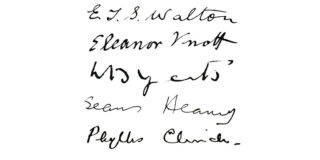 E. T. S. Walton
Eleanor Knott
WB Yeats
Seamus Heaney
Phyllis Clinch.